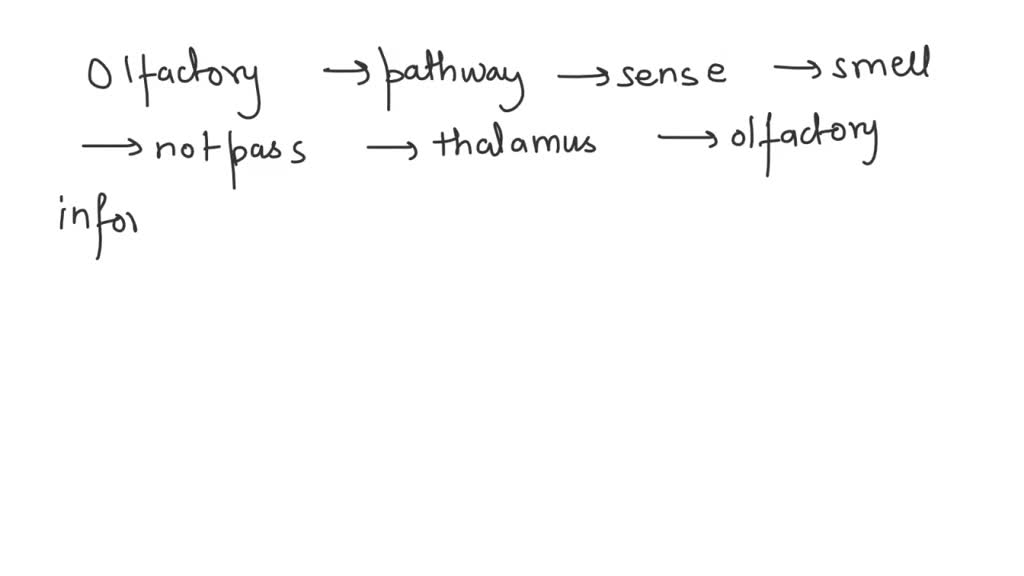 Olfactory → pathway → sense → smell
→ not pass → thalamus → olfactory
infor